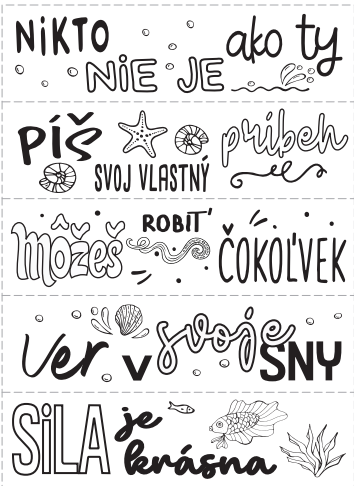 NiKTO NiE JE ako ty
PÍŠ SVOJ VLASTNÝ príbeh
Môžeš ROBIŤ ČOKOĽVEK
Ver v svoje SNY
SiLA je krásna